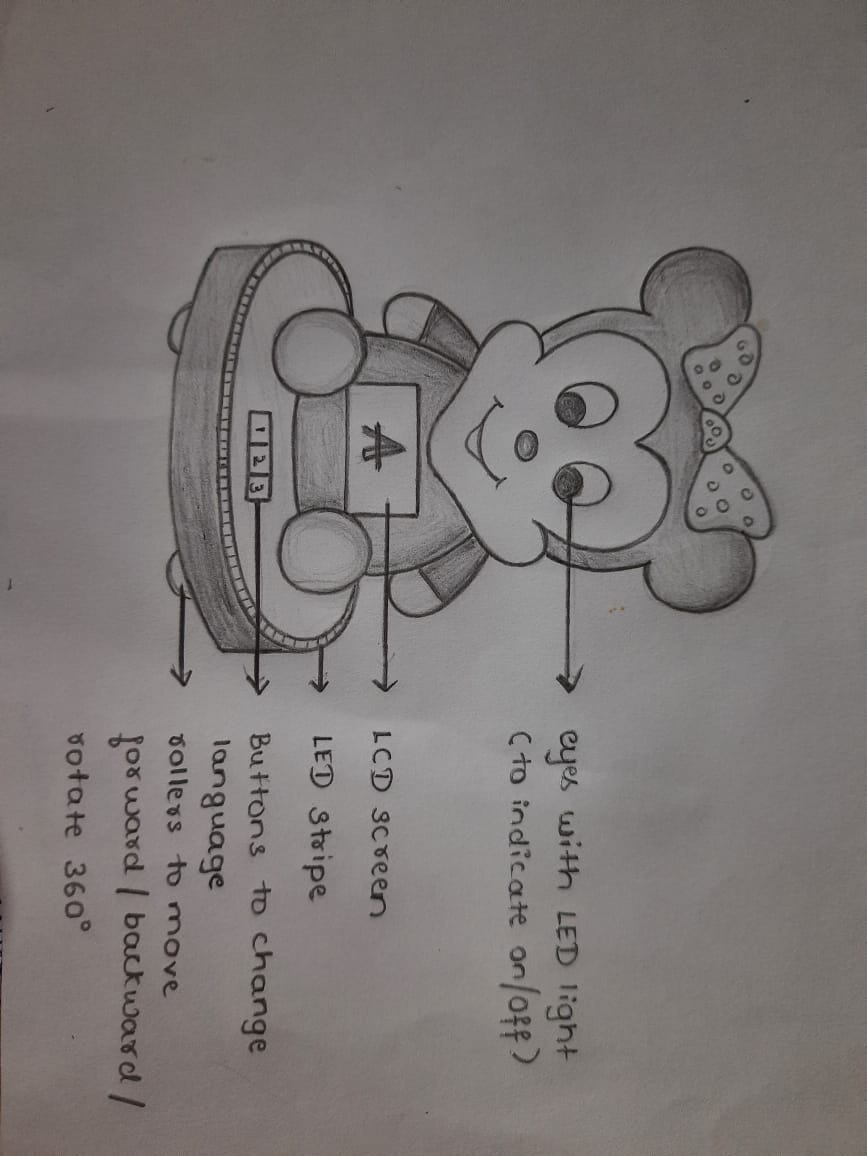 eyes with LED light
(to indicate on/off)
A
LCD screen
LED stripe
1 2 3
Buttons to change
language
rollers to move
forward / backward /
rotate 360°